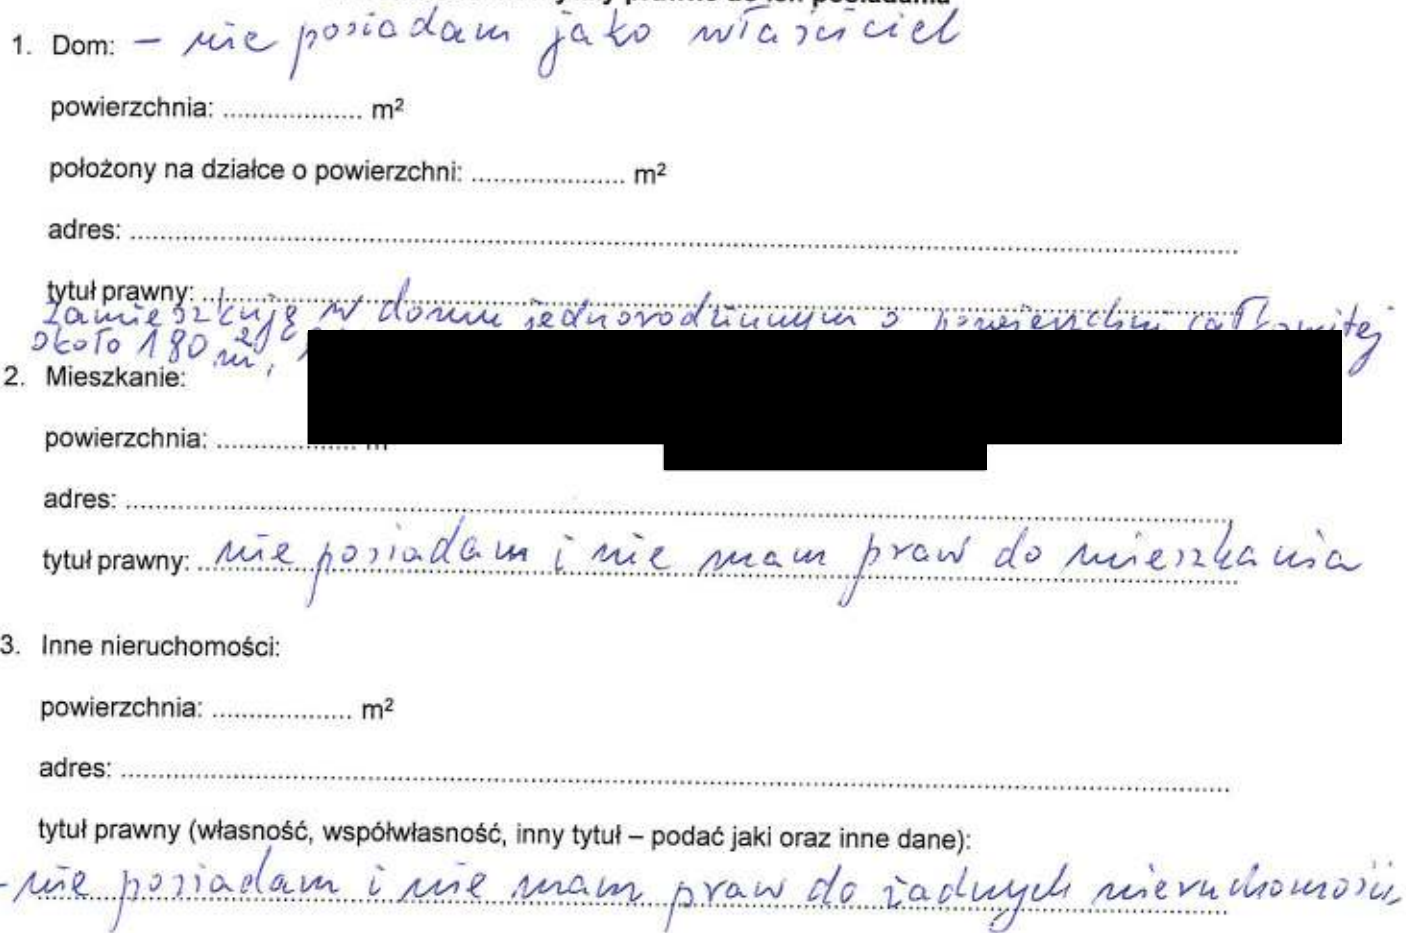 prawne do ich posiadania
1. Dom: – nie posiadam jako właściciel
powierzchnia: .................... m²
położony na działce o powierzchni: ...................... m²
adres: ........................................................................
tytuł prawny: ........................................................................
Zamieszkuję w domu jednorodzinnym o powierzchni całkowitej
około 180 m²,
2. Mieszkanie:
powierzchnia: .................... m
adres: ........................................................................
tytuł prawny: nie posiadam i nie mam praw do mieszkania
3. Inne nieruchomości:
powierzchnia: .................... m²
adres: ........................................................................
tytuł prawny (własność, współwłasność, inny tytuł – podać jaki oraz inne dane):
- nie posiadam i nie mam praw do żadnych nieruchomości,